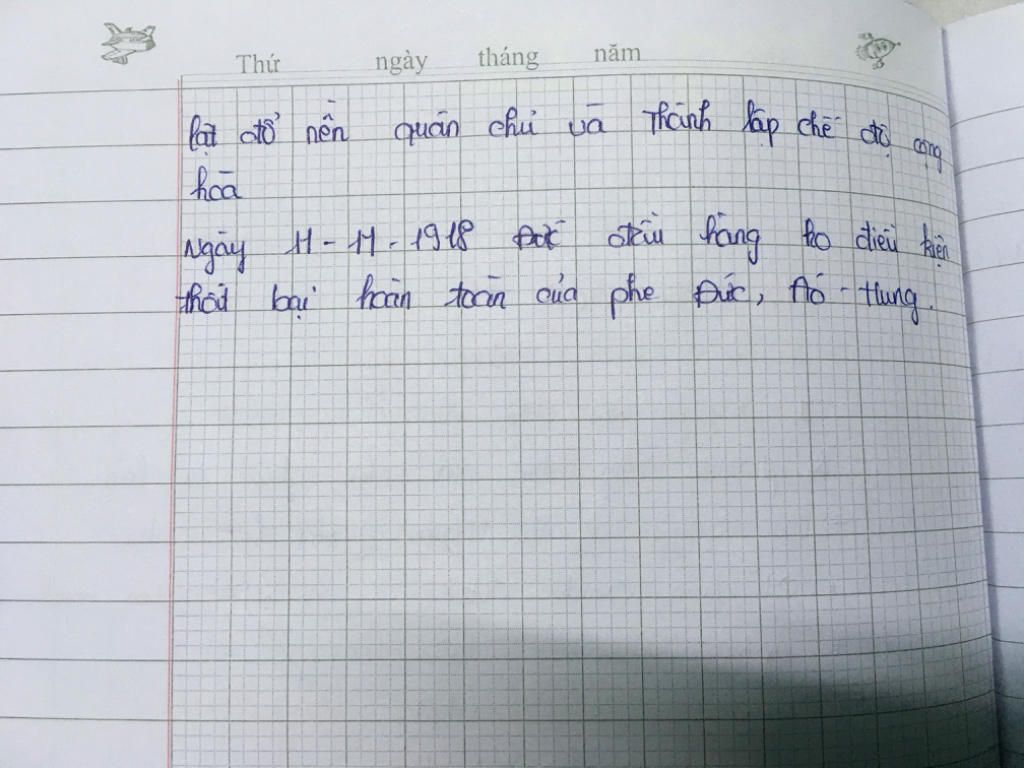 Thứ ngày tháng năm
lật đổ nền quân chủ và Thành lập chế độ cộng
hoà
Ngày 11-11-1918 Đức đầu hàng ko điều kiện
thất bại hoàn toàn của phe Đức, Áo-Hung.